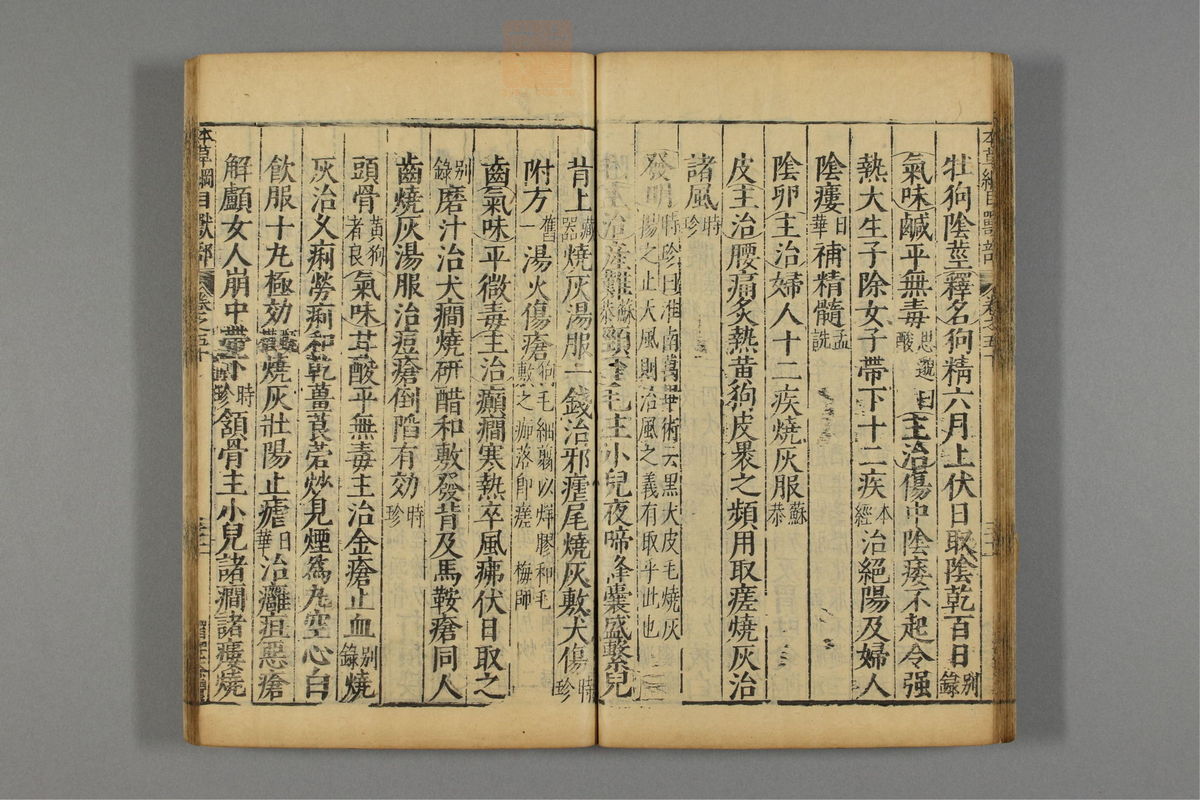 牡狗陰莖釋名狗精六月上伏日取陰乾百日別錄
氣味鹹平無毒思邈曰酸主治傷中陰痿不起令强
熱大生子除女子帶下十二疾本經治絕陽及婦人
陰㾿日華補精髓孟詵
陰卵主治婦人十二疾燒灰服蘇恭
皮主治腰痛炙熱黃狗皮褁之頻用取瘥燒灰治
諸風時珍
發明時珍曰淮南萬畢術云黑犬皮毛燒灰揚之止天風則治風之義有取乎此也
毛主治產難蘇恭頸下毛主小兒夜啼絳囊盛繫兒
背上藏器燒灰湯服一錢治邪瘧尾燒灰敷犬傷時珍
附方舊一湯火傷瘡狗毛細翦以烊膠和毛敷之痂落即瘥梅師
齒氣味平微毒主治癲癇寒熱卒風痱伏日取之
別錄磨汁治犬癇燒研醋和敷發背及馬鞍瘡同人
齒燒灰湯服治痘瘡倒陷有効時珍
頭骨黃狗者良氣味甘酸平無毒主治金瘡止血別錄燒
灰治久痢勞痢和乾薑莨菪炒見煙為丸空心白
飲服十丸極効甄權燒灰壯陽止瘧日華治癰疽惡瘡
解顱女人崩中帶下時珍頷骨主小兒諸癇諸瘻燒
本草綱目獸部
卷之五十
本草綱目獸部
卷之五十